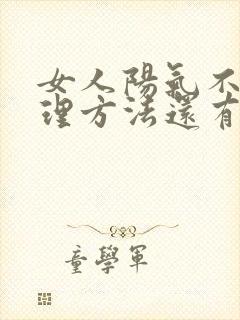 女人陽氣不
理方法還有
童學軍